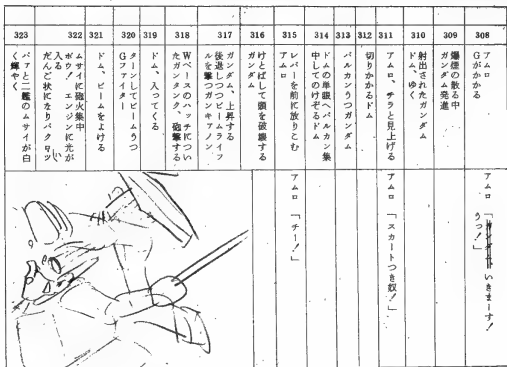 308
アムロ
Gがかかる
アムロ「いきまーす!
うっ!」
309
爆煙の散る中
ガンダム発進
310
射出されたガンダム
ドム、ゆく
311
アムロ、チラと見上げる
アムロ「スカートつき奴!」
312
切りかかるドム
313
バルカンうつガンダム
314
ドムの単眼へバルカン集
中してのけぞるドム
315
レバーを前に放りこむ
アムロ
アムロ「チー!」
316
けとばして頭を破壊する
ガンダム
317
ガンダム、上昇する
後退しつつビームライフ
ルを撃つガンキャノン
318
Wベースのハッチについ
たガンタンク、砲撃する
319
ドム、入ってくる
320
ターンしてビームうつ
Gファイター
321
ドム、ビームをよける
322
ムサイに砲火集中
ボウ!エンジンに光が
入る
だんご状になり
323
パァと二艦のムサイが白
く輝やく